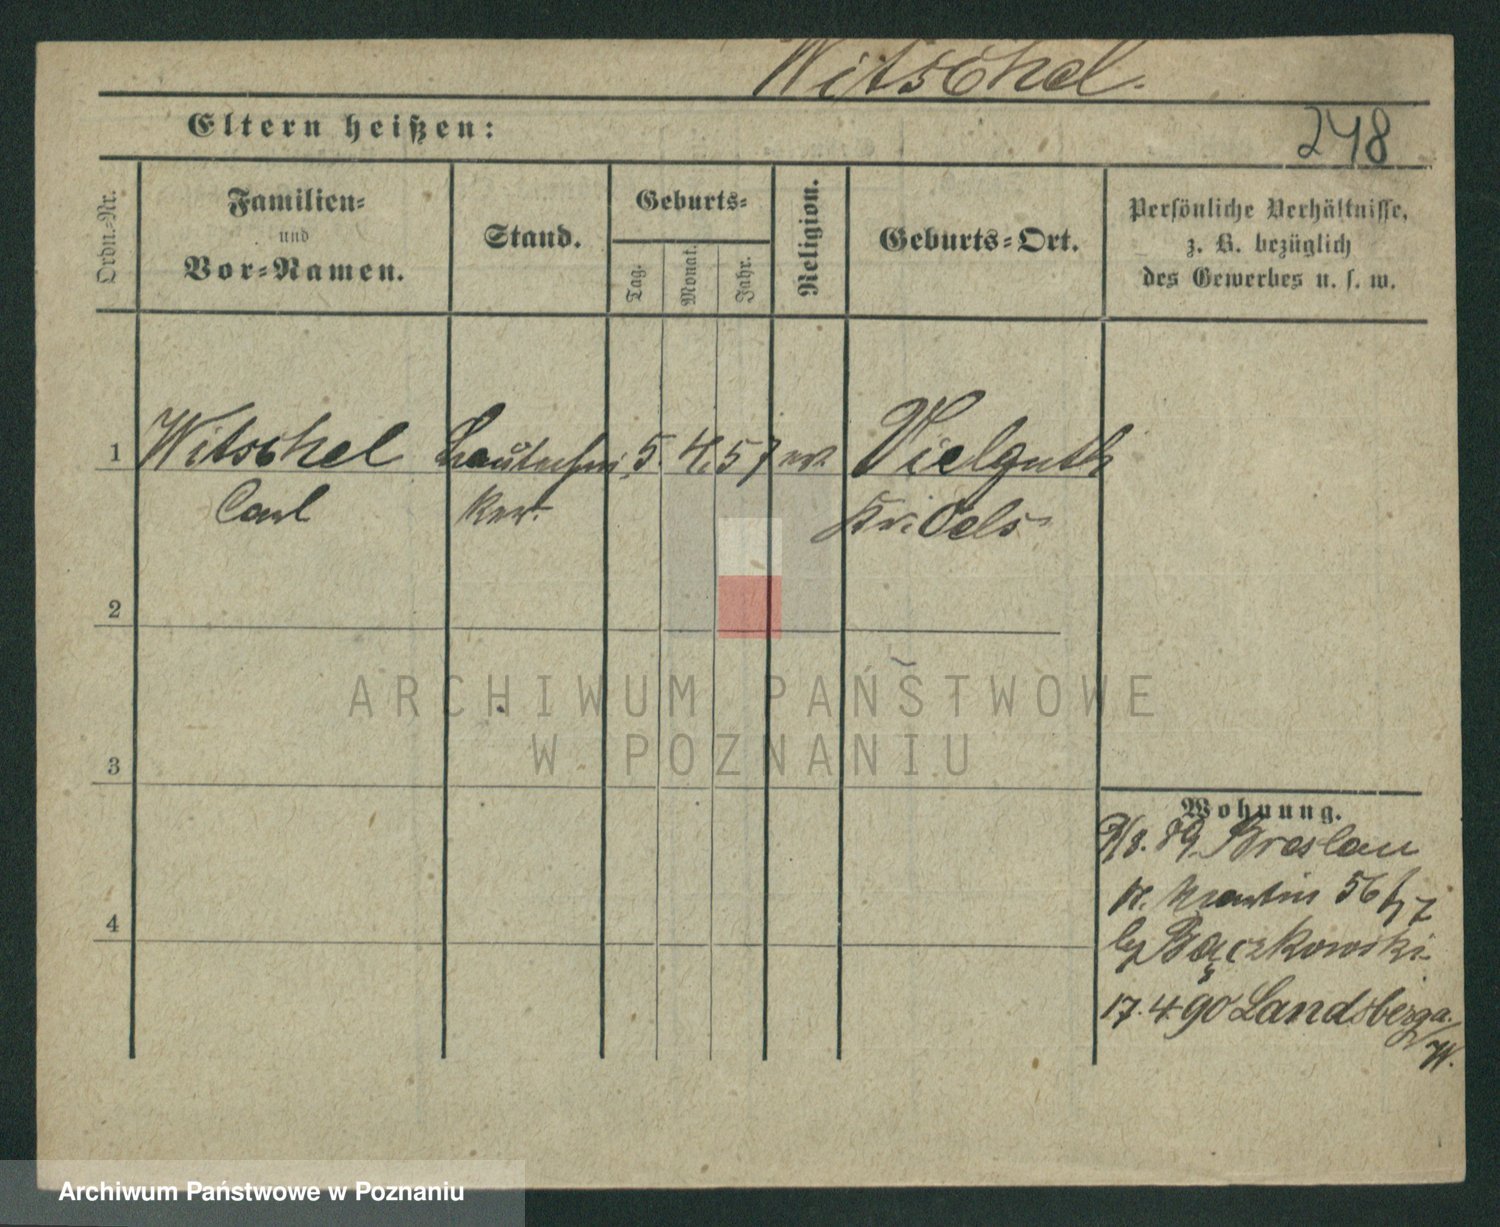 Witschel.
Eltern heißen:
248
Ordn.-Nr.
Familien-
und
Vor-Namen.
Stand.
Geburts-
Tag.
Monat.
Jahr.
Religion.
Geburts-Ort.
Persönliche Verhältnisse,
z. B. bezüglich
des Gewerbes u. s. w.
1 Witschel 5. 4. 57 ev. Vielguth
Carl ker. Kr. Oels
2
3
4
Wohnung.
89. Breslau
St. Martin 56
by Bączkowski
17. 4 90 Landsberg a./W.
ARCHIWUM PAŃSTWOWE
W POZNANIU
Archiwum Państwowe w Poznaniu